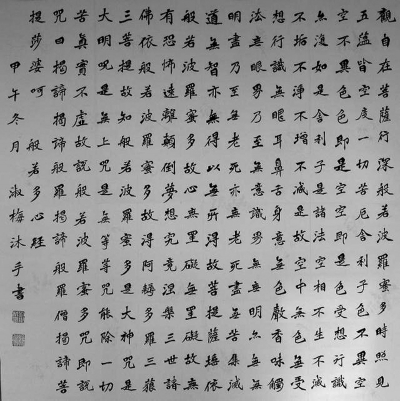 觀自在菩薩行深般若波羅蜜多時照見
五蘊皆空度一切苦厄舍利子色不異空
空不異色色即是空空即是色受想行識
亦復如是舍利子是諸法空相不生不滅
不垢不淨不增不減是故空中無色無受
想行識無眼耳鼻舌身意無色聲香味觸
法無眼界乃至無意識界無無明亦無無
明盡乃至無老死亦無老死盡無苦集滅
道無智亦無得以無所得故菩提薩埵依
般若波羅蜜多故心無罣礙無罣礙故無
有恐怖遠離顛倒夢想究竟涅槃三世諸
佛依般若波羅蜜多故得阿耨多羅三藐
三菩提故知般若波羅蜜多是大神咒是
大明咒是無上咒是無等等咒能除一切
苦真實不虛故說般若波羅蜜多咒即說
咒曰揭諦揭諦般羅揭諦般羅僧揭諦菩
提莎婆呵 般若多心經
甲午冬月淑梅沐手書